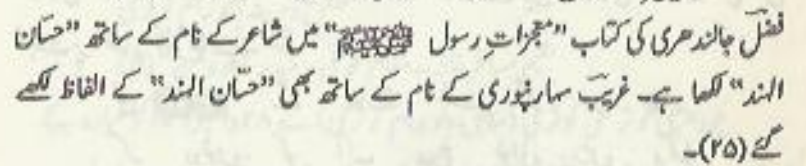 فضلؔ جالندھری کی کتاب "معجزاتِ رسول ﷺ" میں شاعر کے نام کے ساتھ "حسّان
الہند" لکھا ہے۔ غریبؔ سہارنپوری کے نام کے ساتھ بھی "حسّان الہند" کے الفاظ لکھے
گئے (۲۵)۔